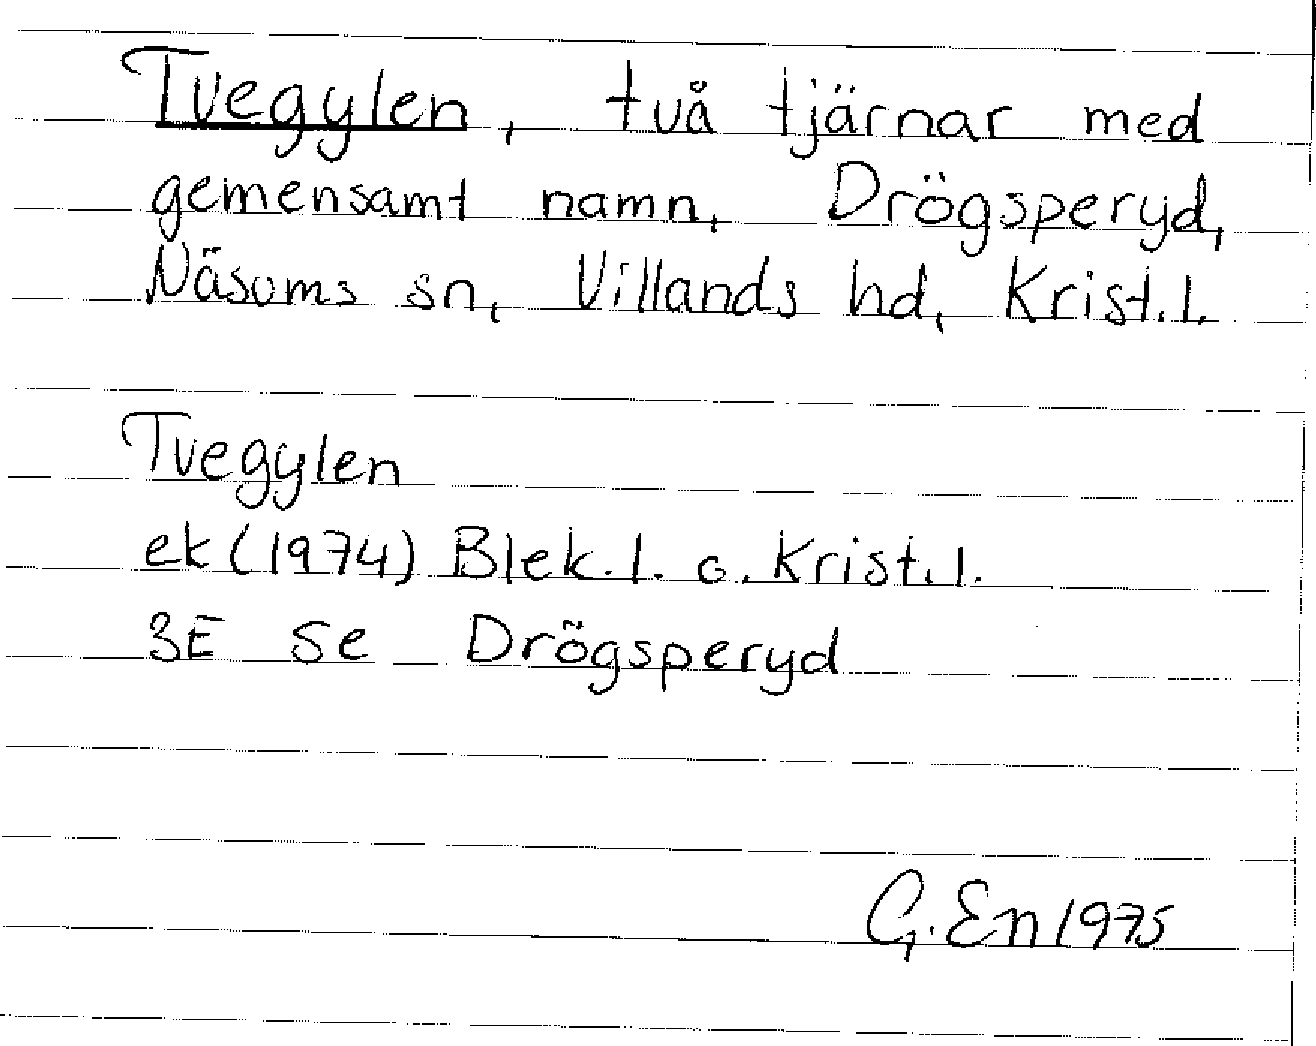 Tvegylen, två tjärnar med
gemensamt namn, Drögsperyd,
Näsums sn, Villands hd, Krist.l.
Tvegylen
ek (1974) Blek.l. o. Krist.l.
3E se Drögsperyd
G.En 1975